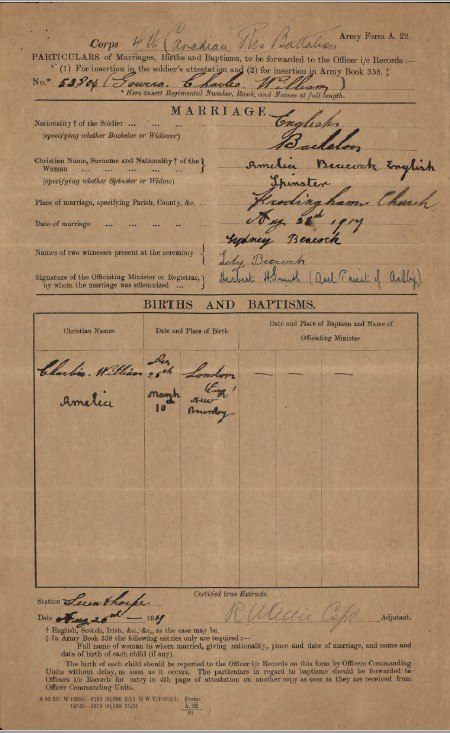 Army Form A. 22.
Corps 4th Canadian Res Battalion
PARTICULARS of Marriages, Births and Baptisms, to be forwarded to the Officer i/c Records :—
* (1) For insertion in the soldier's attestation and (2) for insertion in Army Book 358. ‡
No.* Charles William
* Here insert Regimental Number, Rank, and Names at full length.
MARRIAGE.
Nationality † of the Soldier ... ... ... ... English
(specifying whether Bachelor or Widower) Bachelor
Christian Name, Surname and Nationality † of the Woman ... ... ... ... Amelia Beacock English
(specifying whether Spinster or Widow) Spinster
Place of marriage, specifying Parish, County, &c. ... Frodingham Church
Date of marriage ... ... ... ... Aug 1917
Names of two witnesses present at the ceremony Sydney Beacock
Lily Beacock
Signature of the Officiating Minister or Registrar, by whom the marriage was solemnized ... Herbert Smith of Ashby)
BIRTHS AND BAPTISMS.
Christian Names
Date and Place of Birth
Date and Place of Baptism and Name of Officiating Minister
Charles William 26th London — — —
Amelia March 10th New Brumby
Certified true Extracts.
Station Scunthorpe
Date Aug
Capt Adjutant.
† English, Scotch, Irish, &c., &c., as the case may be.
‡ In Army Book 358 the following entries only are required :—
Full name of woman to whom married, giving nationality, place and date of marriage, and name and
date of birth of each child (if any).
The birth of each child should be reported to the Officer i/c Records on this form by Officers Commanding
Units without delay, as soon as it occurs. The particulars in regard to baptisms should be forwarded to
Officers i/c Records for entry in 4th page of attestation on another copy as soon as they are received from
Officer Commanding Units.
Forms
A. 22